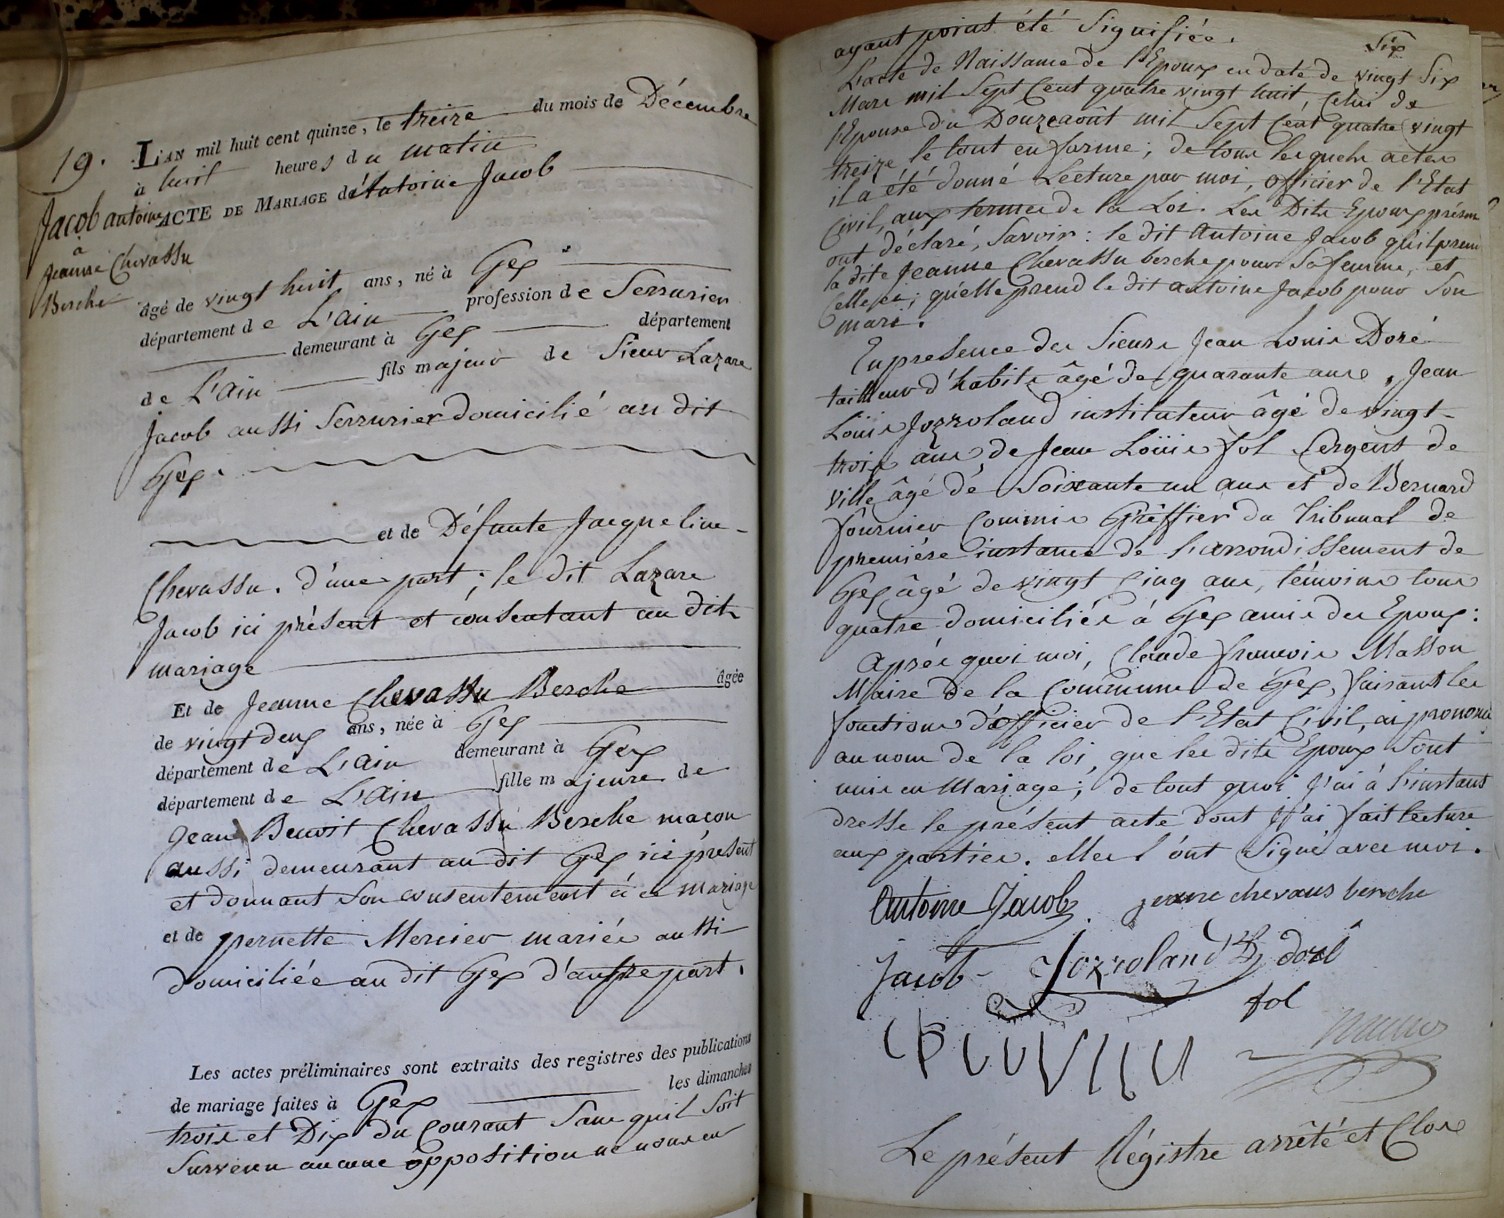 19.
Jacob antoine
à
Jeanne Chevassu
Berche
L'AN mil huit cent quinze, le treize du mois de Décembre
à huit heures du matin
ACTE DE MARIAGE de Antoine Jacob
âgé de vingt huit ans, né à Gex
département de L'ain profession de Serrurier
demeurant à Gex département
de L'ain fils majeur de Sieur Lazare
Jacob aussi Serrurier domicilié au dit
Gex.
et de Défunte Jacqueline
Chevassu. d'une part; le dit Lazare
Jacob ici présent et consentant au dit
mariage
Et de Jeanne Chevassu Berche âgée
de vingt deux ans, née à Gex
département de L'ain demeurant à Gex
département de L'ain fille majeure de
Jean Benoit Chevassu Berche maçon
aussi demeurant au dit Gex ici présent
et donnant Son consentement à ce mariage
et de pernette Mercier mariée aussi
domiciliée au dit Gex d'autre part.
Les actes préliminaires sont extraits des registres des publications
de mariage faites à Gex les dimanches
trois et Dix du Courant Sans quil Soit
Survenu aucune opposition ne nous en
Six
ayant point été Signifiée.
L'acte de Naissance de l'Epoux en date de vingt Six
Mars mil Sept Cent quatre vingt huit, Celui de
l'Epouse du Douze août mil Sept Cent quatre vingt
treize le tout en forme; de tous lesquels actes
il a été donné Lecture par moi, officier de l'Etat
Civil, aux termes de la Loi. Les Dits Epoux présens
ont déclaré, Savoir: le dit Antoine Jacob qu'il prend
la dite Jeanne Chevassu berche pour Sa femme, et
Celle ci; qu'elle prend le dit antoine Jacob pour Son
mari.
En présence des Sieurs Jean Louis Doré
tailleur d'habits âgé de quarante ans, Jean
Louis Jozzoland instituteur âgé de vingt
trois ans, de Jean Loüis fol Sergent de
ville âgé de Soixante un ans et de Bernard
fournier Commis Gréffier du Tribunal de
première instance de l'arrondissement de
Gex âgé de vingt Cinq ans, témoins tous
quatre domiciliés à Gex amis des Epoux:
Après quoi moi, Claude françois Masson
Maire de la Commune de Gex, faisant les
fonctions d'officier de l'Etat Civil, ai prononcé
au nom de la loi, que les dits Epoux Sont
unis en Mariage; de tout quoi j'ai à l'instant
dressé le présent acte dont j'ai fait lecture
aux parties. elles l'ont Signé avec moi.
Antoine Jacob. jeanne chevasus berche
Jacob Jozzoland dorè
fol
Le présent Régistre arrêté et Clos